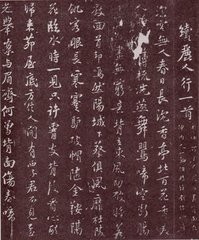 續麗人行一首
深宮無人春日長沉香亭北百花香美
人睡起薄梳洗燕舞鶯啼空斷腸
畫工欲畫無窮意背立東風初破睡若
教回首却嫣然陽城下蔡俱風靡杜陵
飢客眼長寒蹇驢破帽隨金鞍隔
花臨水時一見只許腰支背後看心醉
歸來茆屋底方信人間有西子君不見孟
光舉案與眉齊何曾背面傷春啼